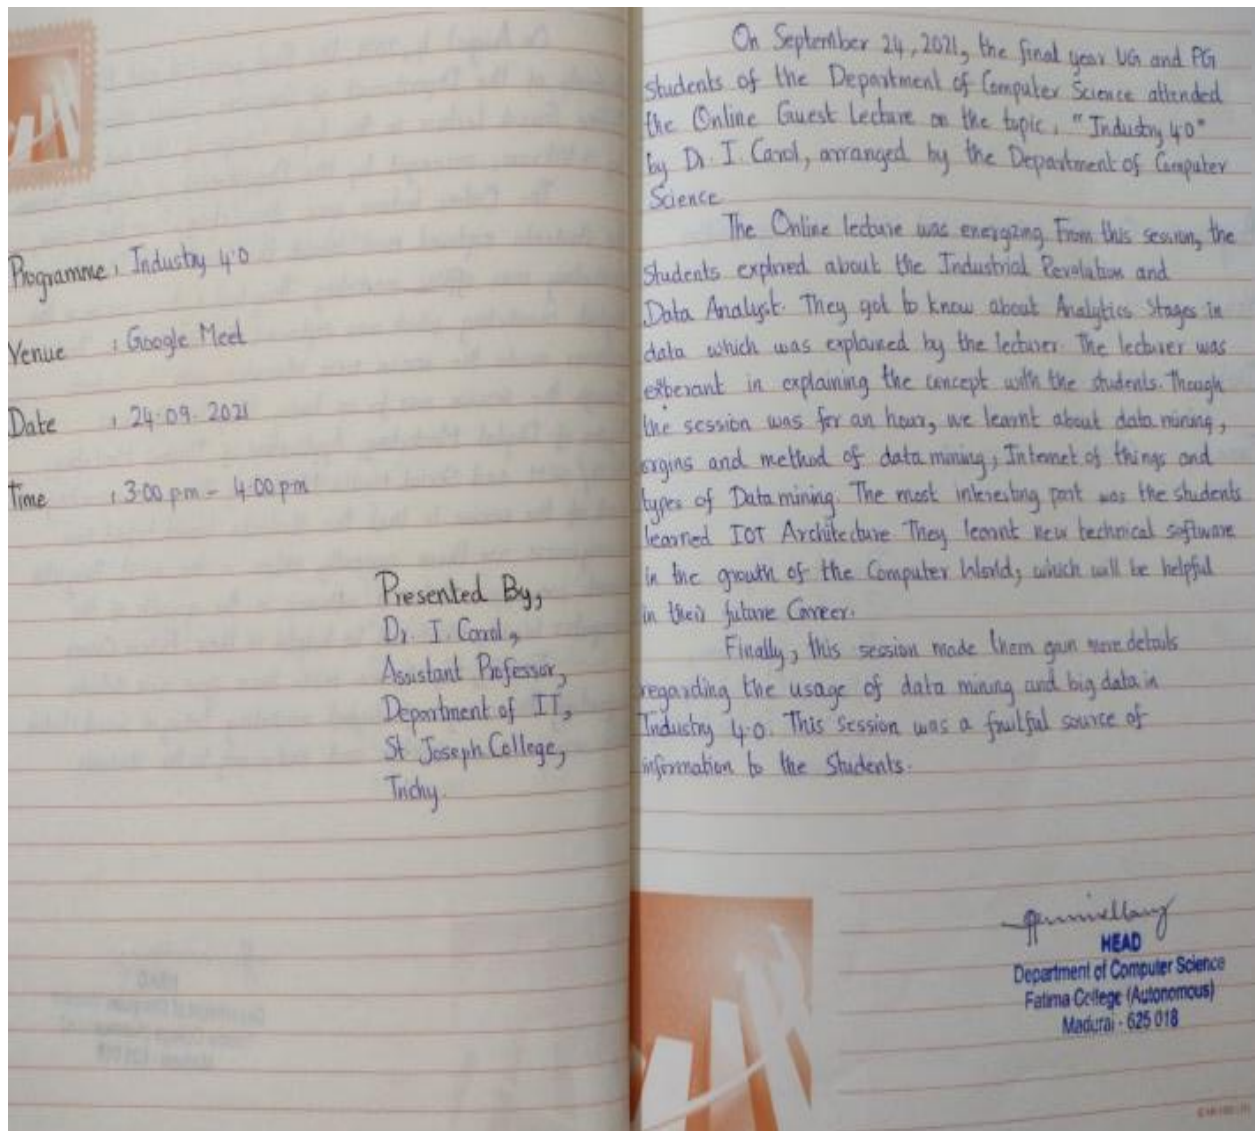 Programme : Industry 4.0
Venue : Google Meet
Date : 24.09.2021
Time : 3.00 pm - 4.00 pm
Presented By,
Dr. I. Carol,
Assistant Professor,
Department of IT,
St Joseph College,
Trichy.
On September 24, 2021, the final year UG and PG
students of the Department of Computer Science attended
the Online Guest Lecture on the topic, "Industry 4.0"
by Dr. I. Carol, arranged by the Department of Computer
Science.
The Online lecture was energizing. From this session, the
Students explored about the Industrial Revolution and
Data Analyst. They got to know about Analytics Stages in
data which was explained by the lecturer. The lecturer was
exberant in explaining the concept with the students. Though
the session was for an hour, we learnt about data mining,
orgins and method of data mining, Internet of things and
types of Data mining. The most interesting part was the students
learned IOT Architecture. They learnt new technical software
in the growth of the Computer World, which will be helpful
in their future Career.
Finally, this session made them gain more details
regarding the usage of data mining and big data in
Industry 4.0. This session was a fruitful source of
information to the Students.
HEAD
Department of Computer Science
Fatima College (Autonomous)
Madurai - 625 018